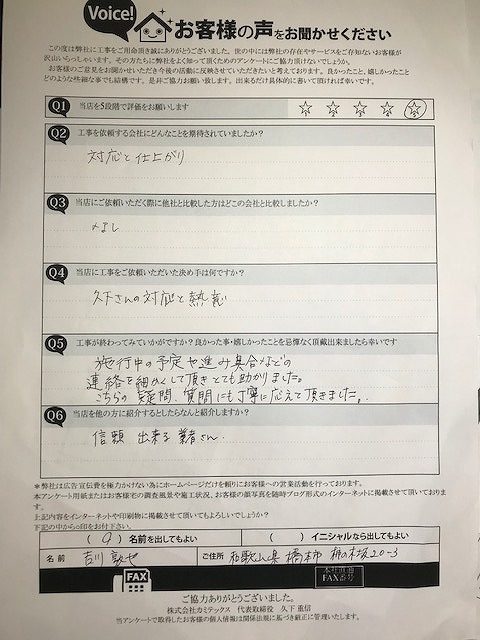 Voice!
お客様の声をお聞かせください
この度は弊社に工事をご用命頂き誠にありがとうございました。世の中には弊社の存在やサービスをご存知ないお客様が
沢山いらっしゃいます。その方たちに弊社をよく知って頂くためのアンケートにご協力頂けないでしょうか。
お客様のご意見をお聞かせいただき今後の活動に反映させていただきたいと考えております。良かったこと、嬉しかったこと
どのような些細な事でも結構です。是非ご協力お願い致します。出来るだけ具体的に書いて頂ければ幸いです。
Q1 当店を5段階で評価をお願いします ☆ ☆ ☆ ☆ ☆
Q2 工事を依頼する会社にどんなことを期待されていましたか？
対応と仕上がり
Q3 当店にご依頼いただく際に他社と比較した方はどこの会社と比較しましたか？
なし
Q4 当店に工事をご依頼いただいた決め手は何ですか？
久下さんの対応と熱意
Q5 工事が終わってみていかがですか？良かった事・嬉しかったことを忌憚なく頂戴出来ましたら幸いです
施行中の予定や進み具合などの
連絡を細かくして頂きとても助かりました。
こちらの疑問、質問にも丁寧に応えて頂きました。
Q6 当店を他の方に紹介するとしたらなんと紹介しますか？
信頼 出来る業者さん
＊弊社は広告宣伝費を極力かけない為にホームページだけを頼りにお客様への営業活動を行っております。
本アンケート用紙またはお客様宅の調査風景や施工状況、お客様の顔写真を随時ブログ形式のインターネットに掲載させて頂いております。
上記内容をインターネットや印刷物に掲載させて頂いてもよろしいでしょうか？
下記の中からの印をお付下さい。
( ○ ) 名前を出してもよい ( ) イニシャルなら出してもよい
名前 吉川 敦也 ご住所 和歌山県 橋本市 柿の木坂20-3
FAX
本社直通
FAX番号
ご協力ありがとうございました。
株式会社カミテックス 代表取締役 久下 重信
当アンケートで取得したお客様の個人情報は関係法規に基づき厳正に管理いたします。